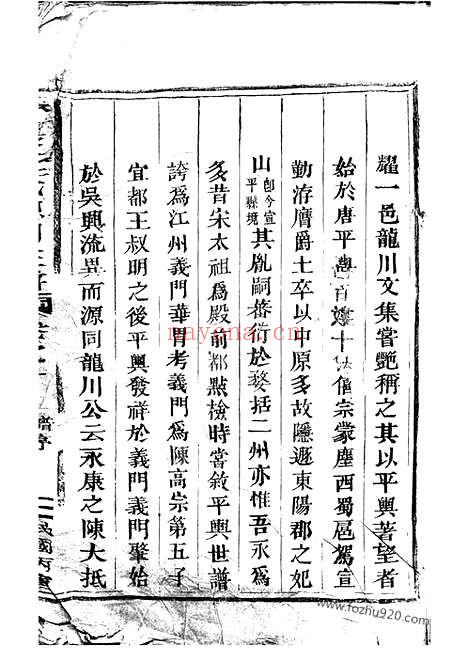 耀一邑龍川文集嘗艷稱之其以平輿著望者
始於唐平輿 僖宗蒙塵西蜀扈駕宣
勤洊膺爵土卒以中原多故隱遯東陽郡之
山卽今宣平縣境其胤嗣蕃衍於婺括二州亦惟吾永爲
多昔宋太祖爲殿前都點檢時嘗敘平輿世譜
誇爲江州義門華胄考義門爲陳高宗第五子
宜都王叔明之後平輿發祥於義門義門肇始
於吳興流異而源同龍川公云永康之陳大抵
譜序
二
民國丙
nayona.cn
www.fozhu920.com